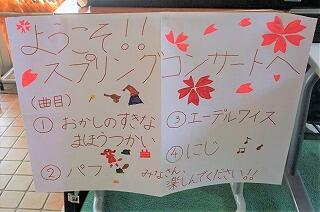 ようこそ!!
スプリングコンサートへ
(曲目)
① おかしのすきな
まほうつかい
② パフ
③ エーデルワイス
④ にじ
みなさん、
楽しんでください!!